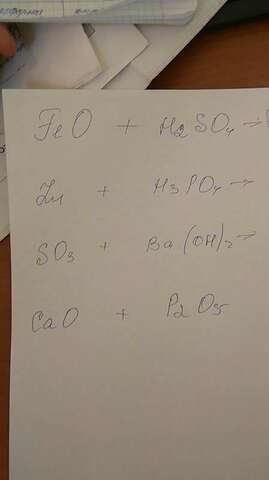 FeO + H2SO4 →
Zn + H3PO4 →
SO3 + Ba(OH)2 →
CaO + P2O5